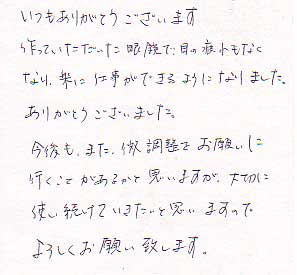 いつもありがとうございます
作っていただいた眼鏡で、目の疲れもなく
なり、楽に仕事ができるようになりました。
ありがとうございました。
今後も、また、微調整をお願いしに
行くことがあるかと思いますが、大切に
使い続けていきたいと思いますので
よろしくお願い致します。